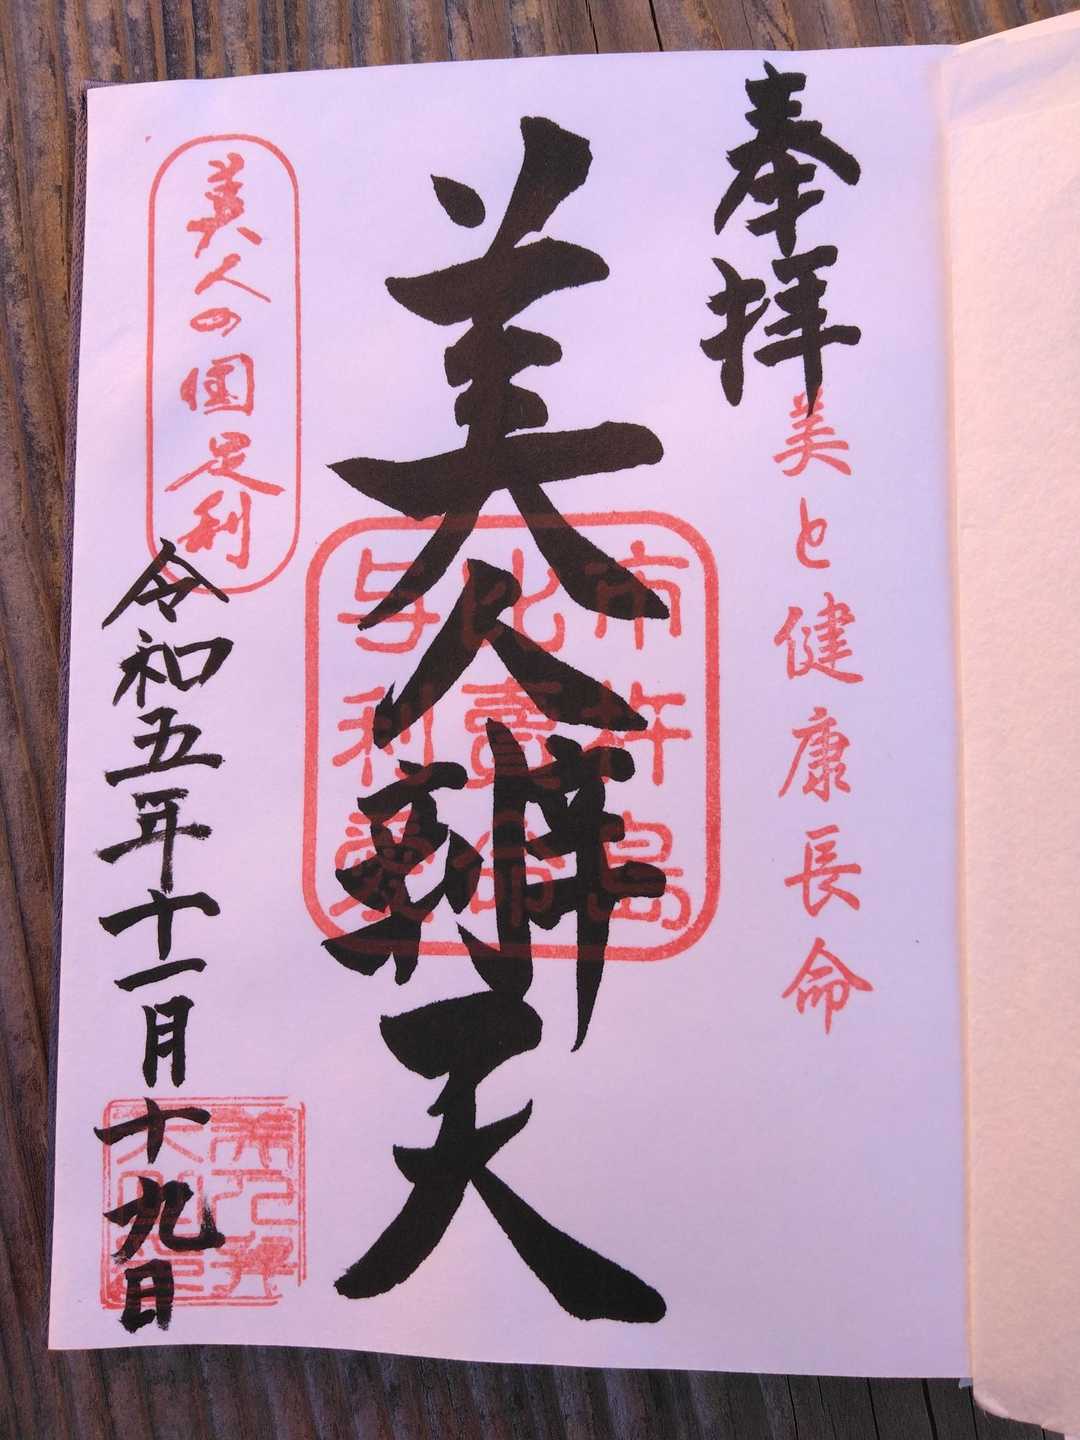 奉拝
美と健康長命
美人辨天
市杵島
比賣命
与利愛
美人の国足利
令和五年十一月十九日
美人弁